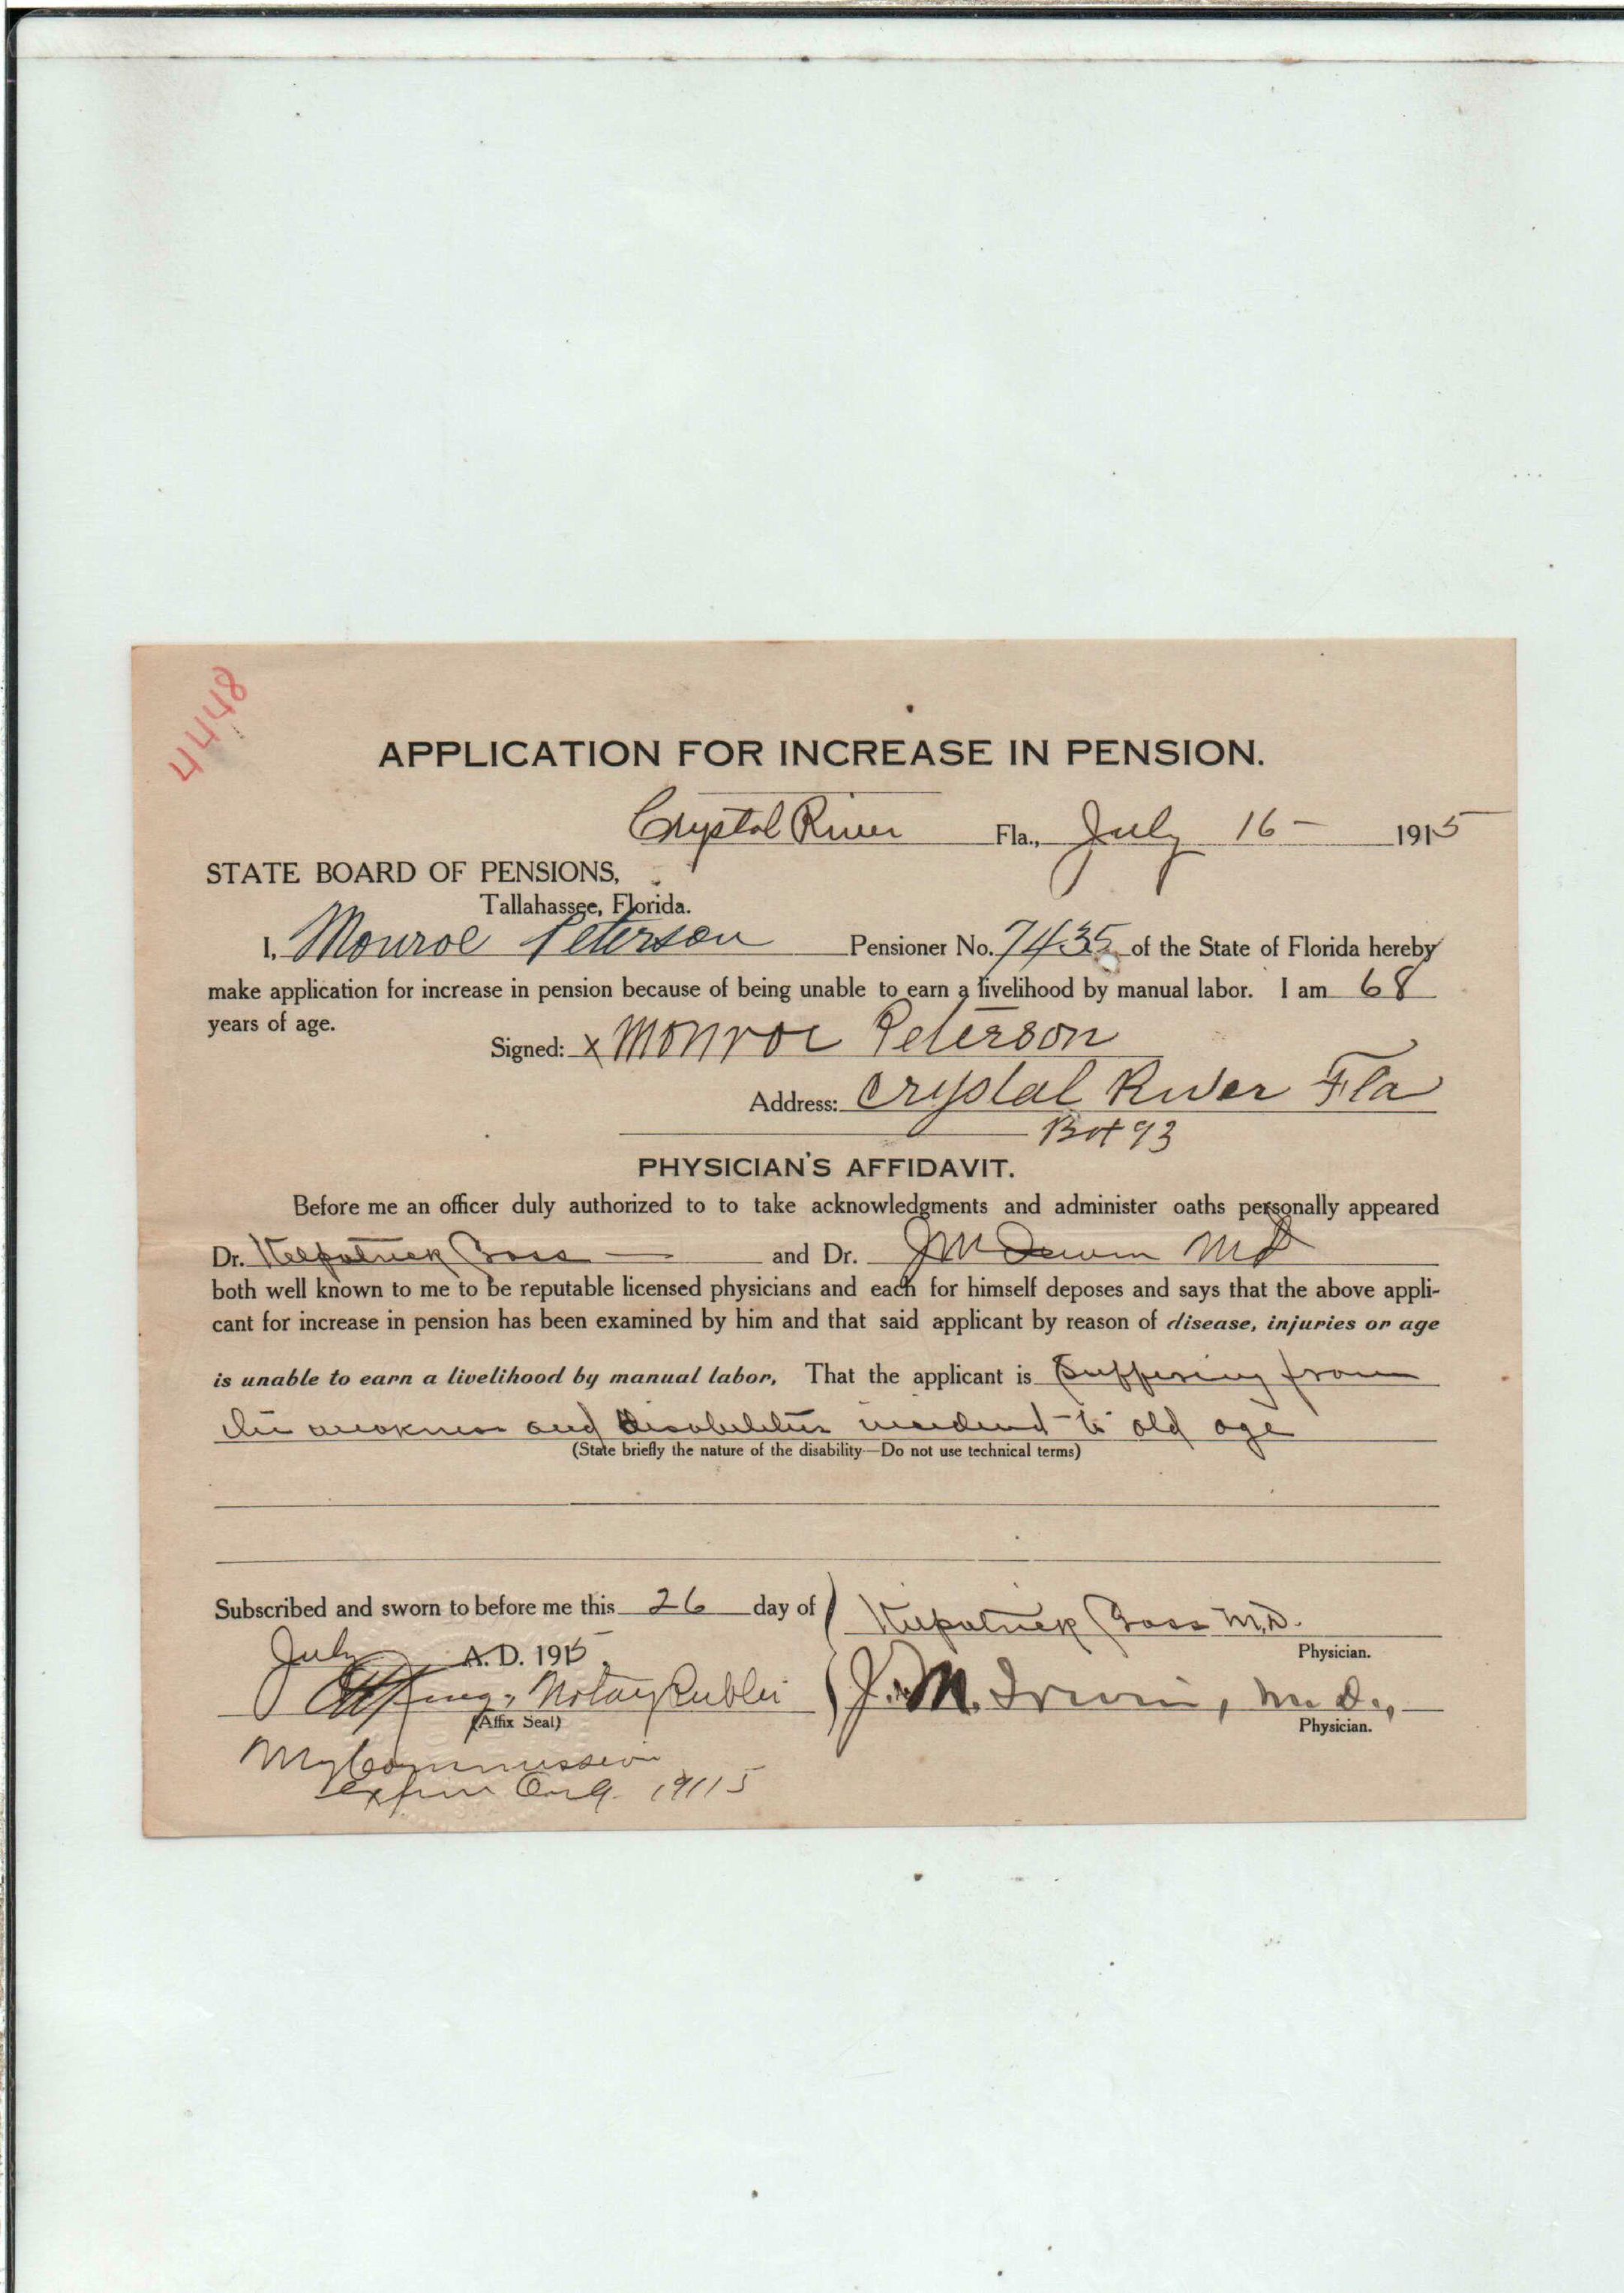 4448
APPLICATION FOR INCREASE IN PENSION.
Crystal River Fla., July 16 - 1915
STATE BOARD OF PENSIONS,
Tallahassee, Florida.
I, Monroe Peterson Pensioner No. 7435 of the State of Florida hereby
make application for increase in pension because of being unable to earn a livelihood by manual labor. I am 68
years of age.
Signed: x Monroe Peterson
Address: Crystal River Fla
Box 93
PHYSICIAN'S AFFIDAVIT.
Before me an officer duly authorized to to take acknowledgments and administer oaths personally appeared
Dr. Kilpatrick — and Dr. J M Irwin MD
both well known to me to be reputable licensed physicians and each for himself deposes and says that the above appli-
cant for increase in pension has been examined by him and that said applicant by reason of disease, injuries or age
is unable to earn a livelihood by manual labor. That the applicant is suffering from
the weakness and disabilities incident to old age
(State briefly the nature of the disability—Do not use technical terms)
Subscribed and sworn to before me this 26 day of
Kilpatrick M.D.
Physician.
July A. D. 1915.
Notary Public
J. M. Irwin, M. D.,
(Affix Seal)
Physician.
My Commission
expires Aug. 1915